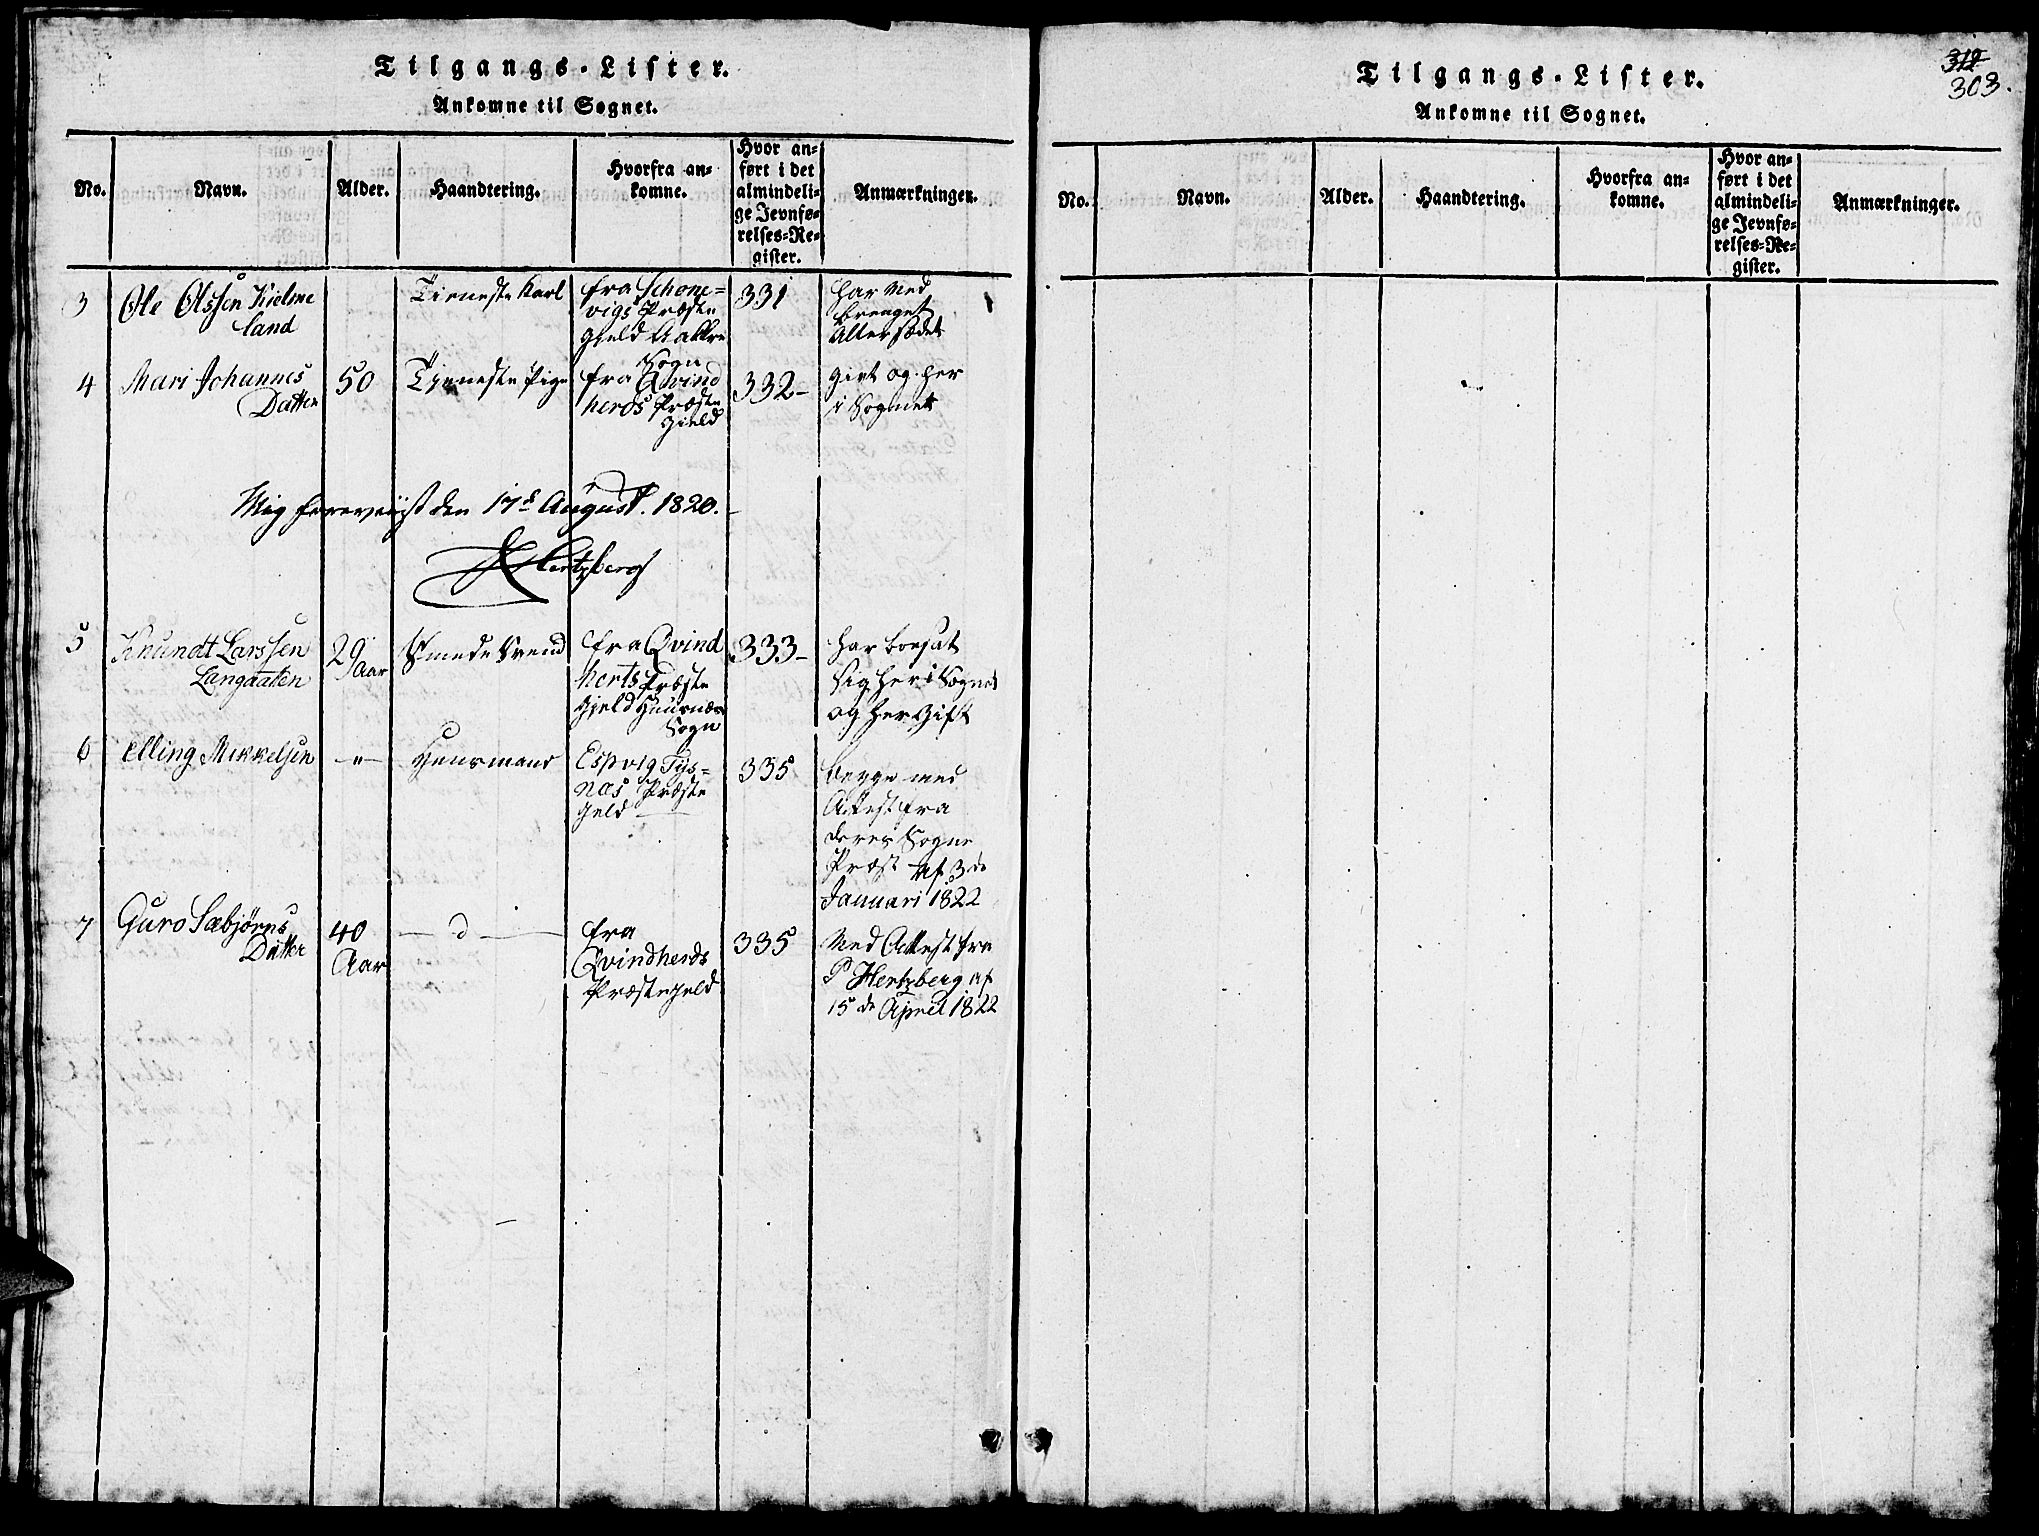 Tilgangs-Lister.
Ankomne til Sognet.
No. Navn. Alder. Haandtering. Hvorfra an-
komne. Hvor an-
ført i det
almindeli-
ge Jevnfø-
relses-Re-
gister. Anmærkninger.
3 Ole Olssen Kielme
land
Tieneste Karl
fra Schone-
vigs Præste
gield Aakre
Sogn
331
har med
bringet
Alterseddel
4 Mari Johannes
Datter
50
Tieneste Pige
fra Qvind
herds Præste
gield
332-
givt og her
i Sognet
Mig foreviist den 17d August. 1820.
Hertzberg
5 Knundt Larssen
Langaaten
29 Aar
Smede Svend
fra Qvind
herts Præste
Gjeld Huusnæs
Sogn
333-
har boesat
sig her i Sognet
og her Gift
6 Elling Mikkelsen
-"-
Huusmand
Espvig Tys-
næs Præste
geld
335
begge med
Attest fra
deres Sogne
Præst af 3de
Januari 1822
7 Guro Sæbjørns
Datter
40
Aar
-d-
fra
Qvindherds
Præstegield
335
Med Attest fra
P Hertzberg af
15de April 1822
312
303.
Tilgangs-Lister.
Ankomne til Sognet.
No. Navn. Alder. Haandtering. Hvorfra an-
komne. Hvor an-
ført i det
almindeli-
ge Jevnfø-
relses-Re-
gister. Anmærkninger.